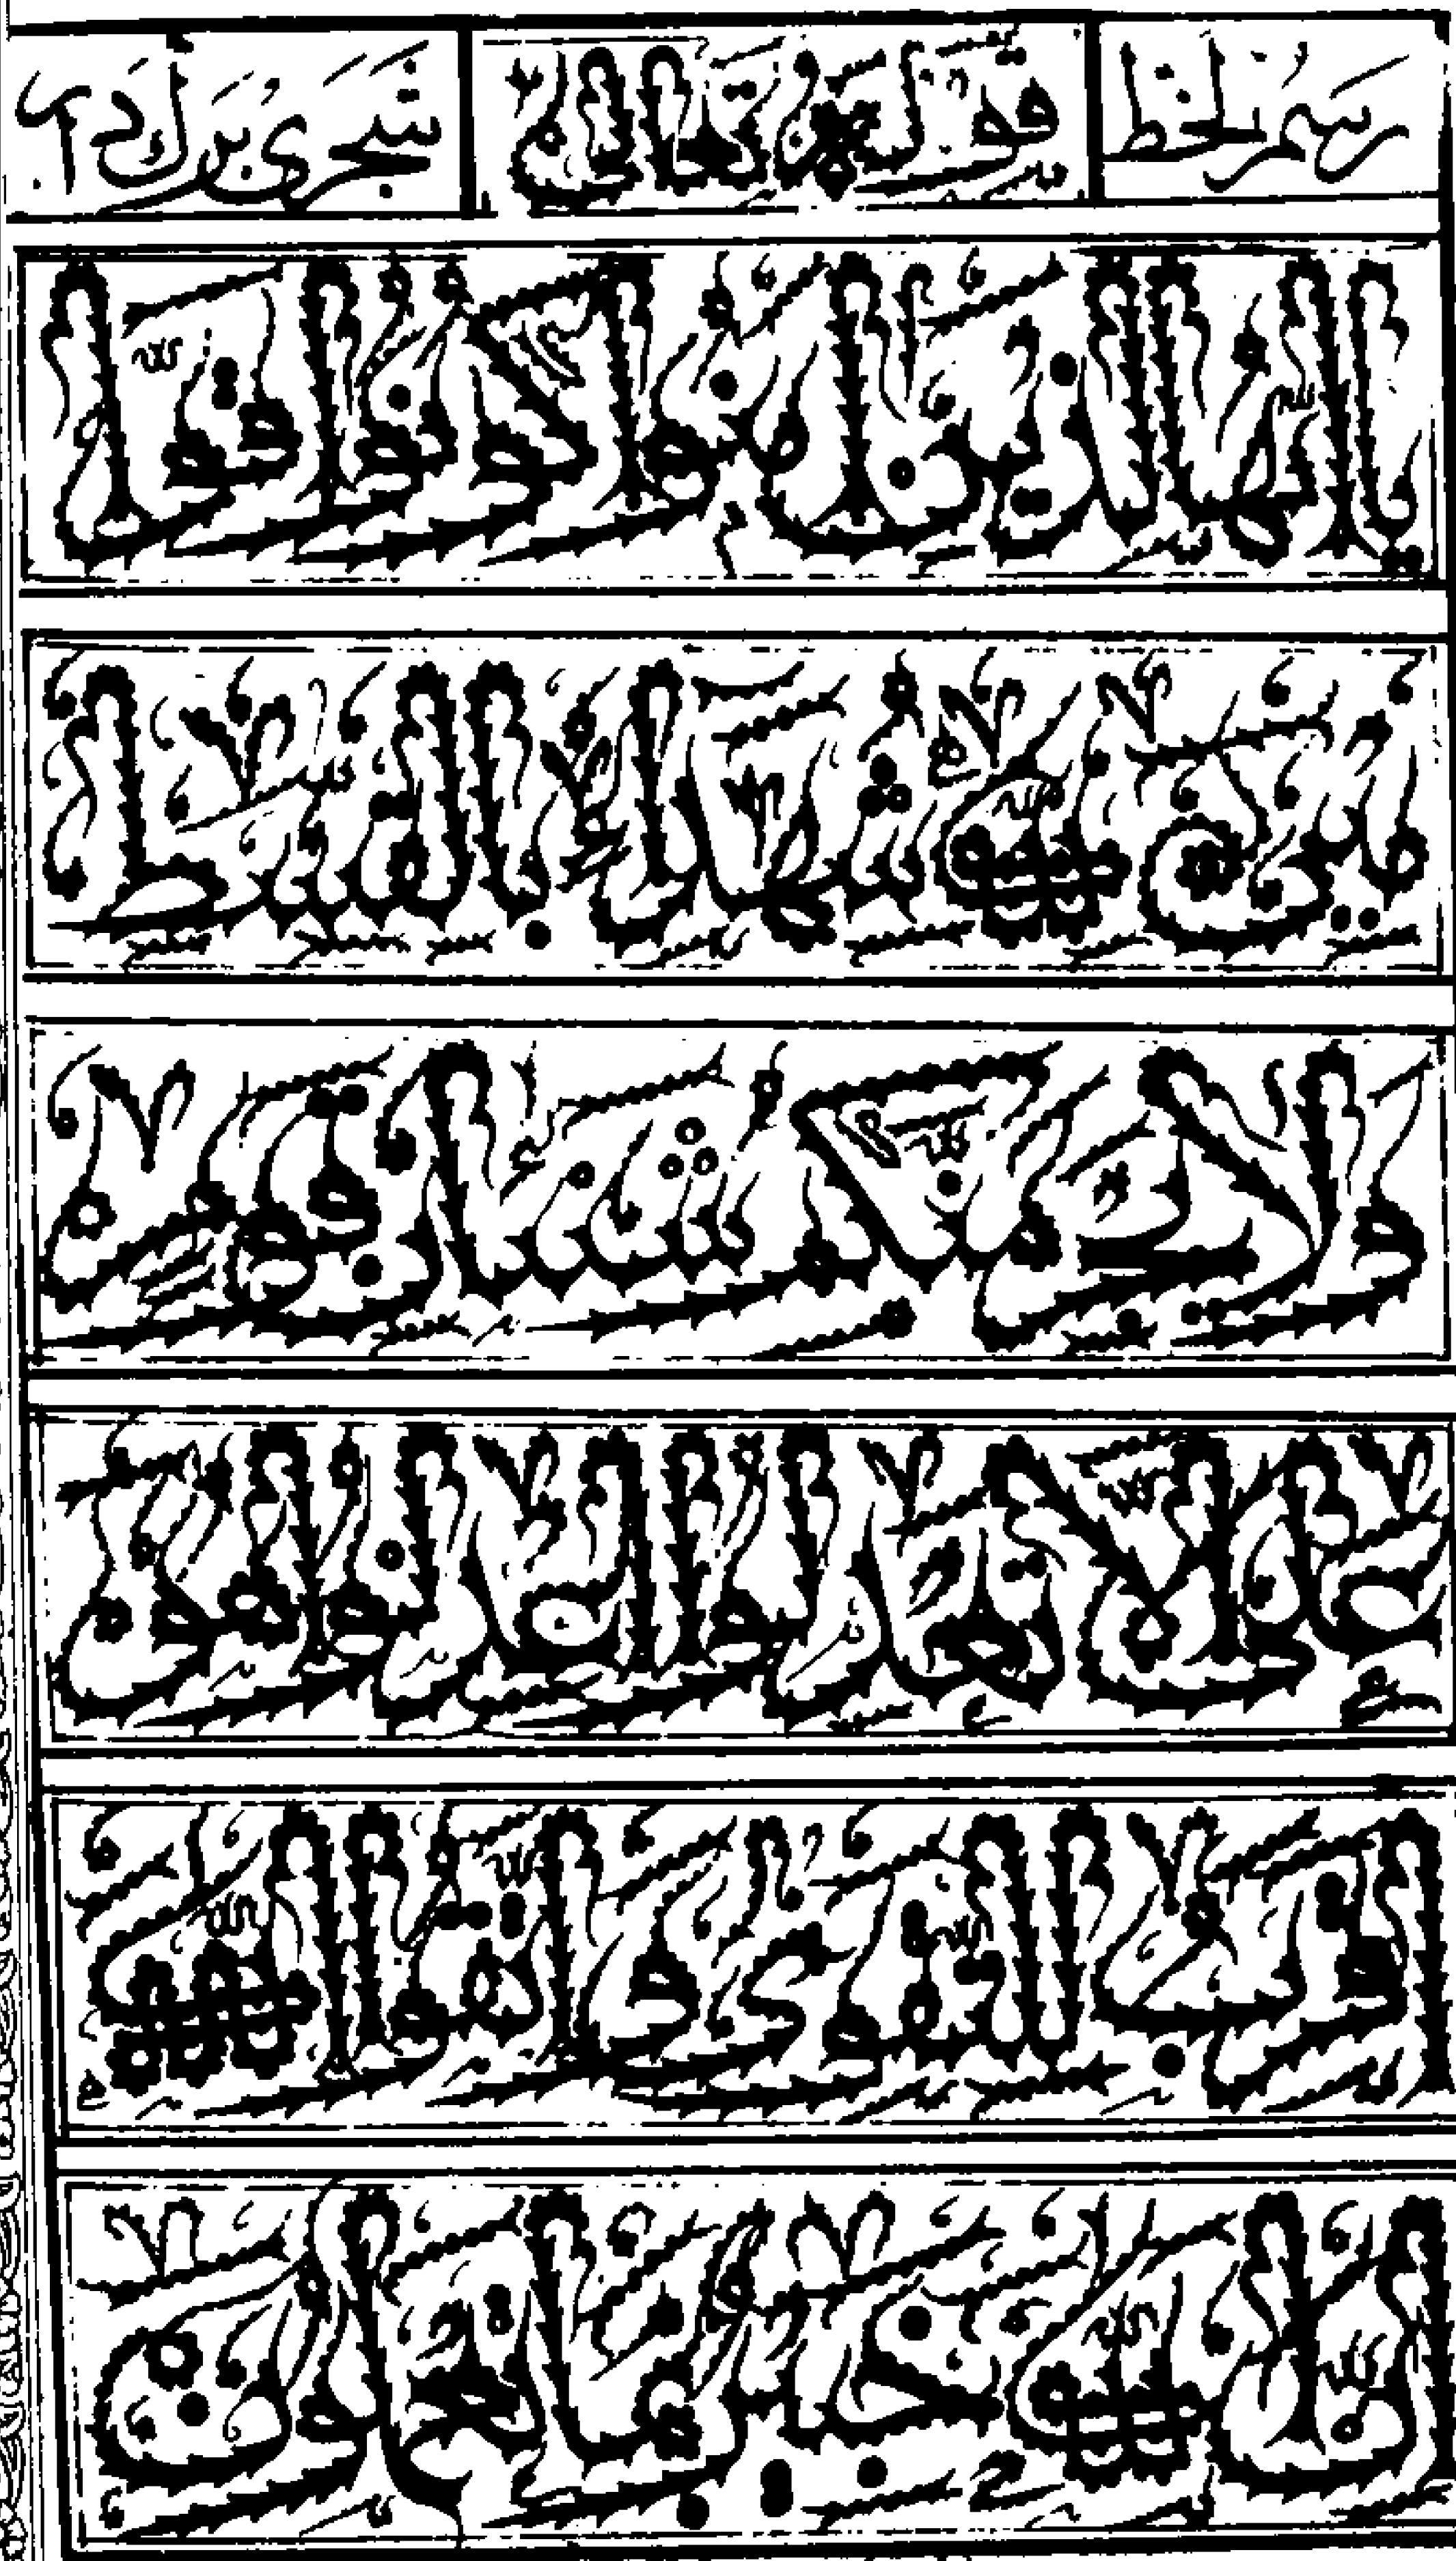 رسم الخط قوله تعالى شجرى بزرک
يا ايها الذين امنوا كونوا قوا
مين لله شهداء بالقسط
ولا يجرمنكم شنان قوم
على الا تعدلوا اعدلوا هو
اقرب للتقوى واتقوا الله
ان الله خبير بما تعملون